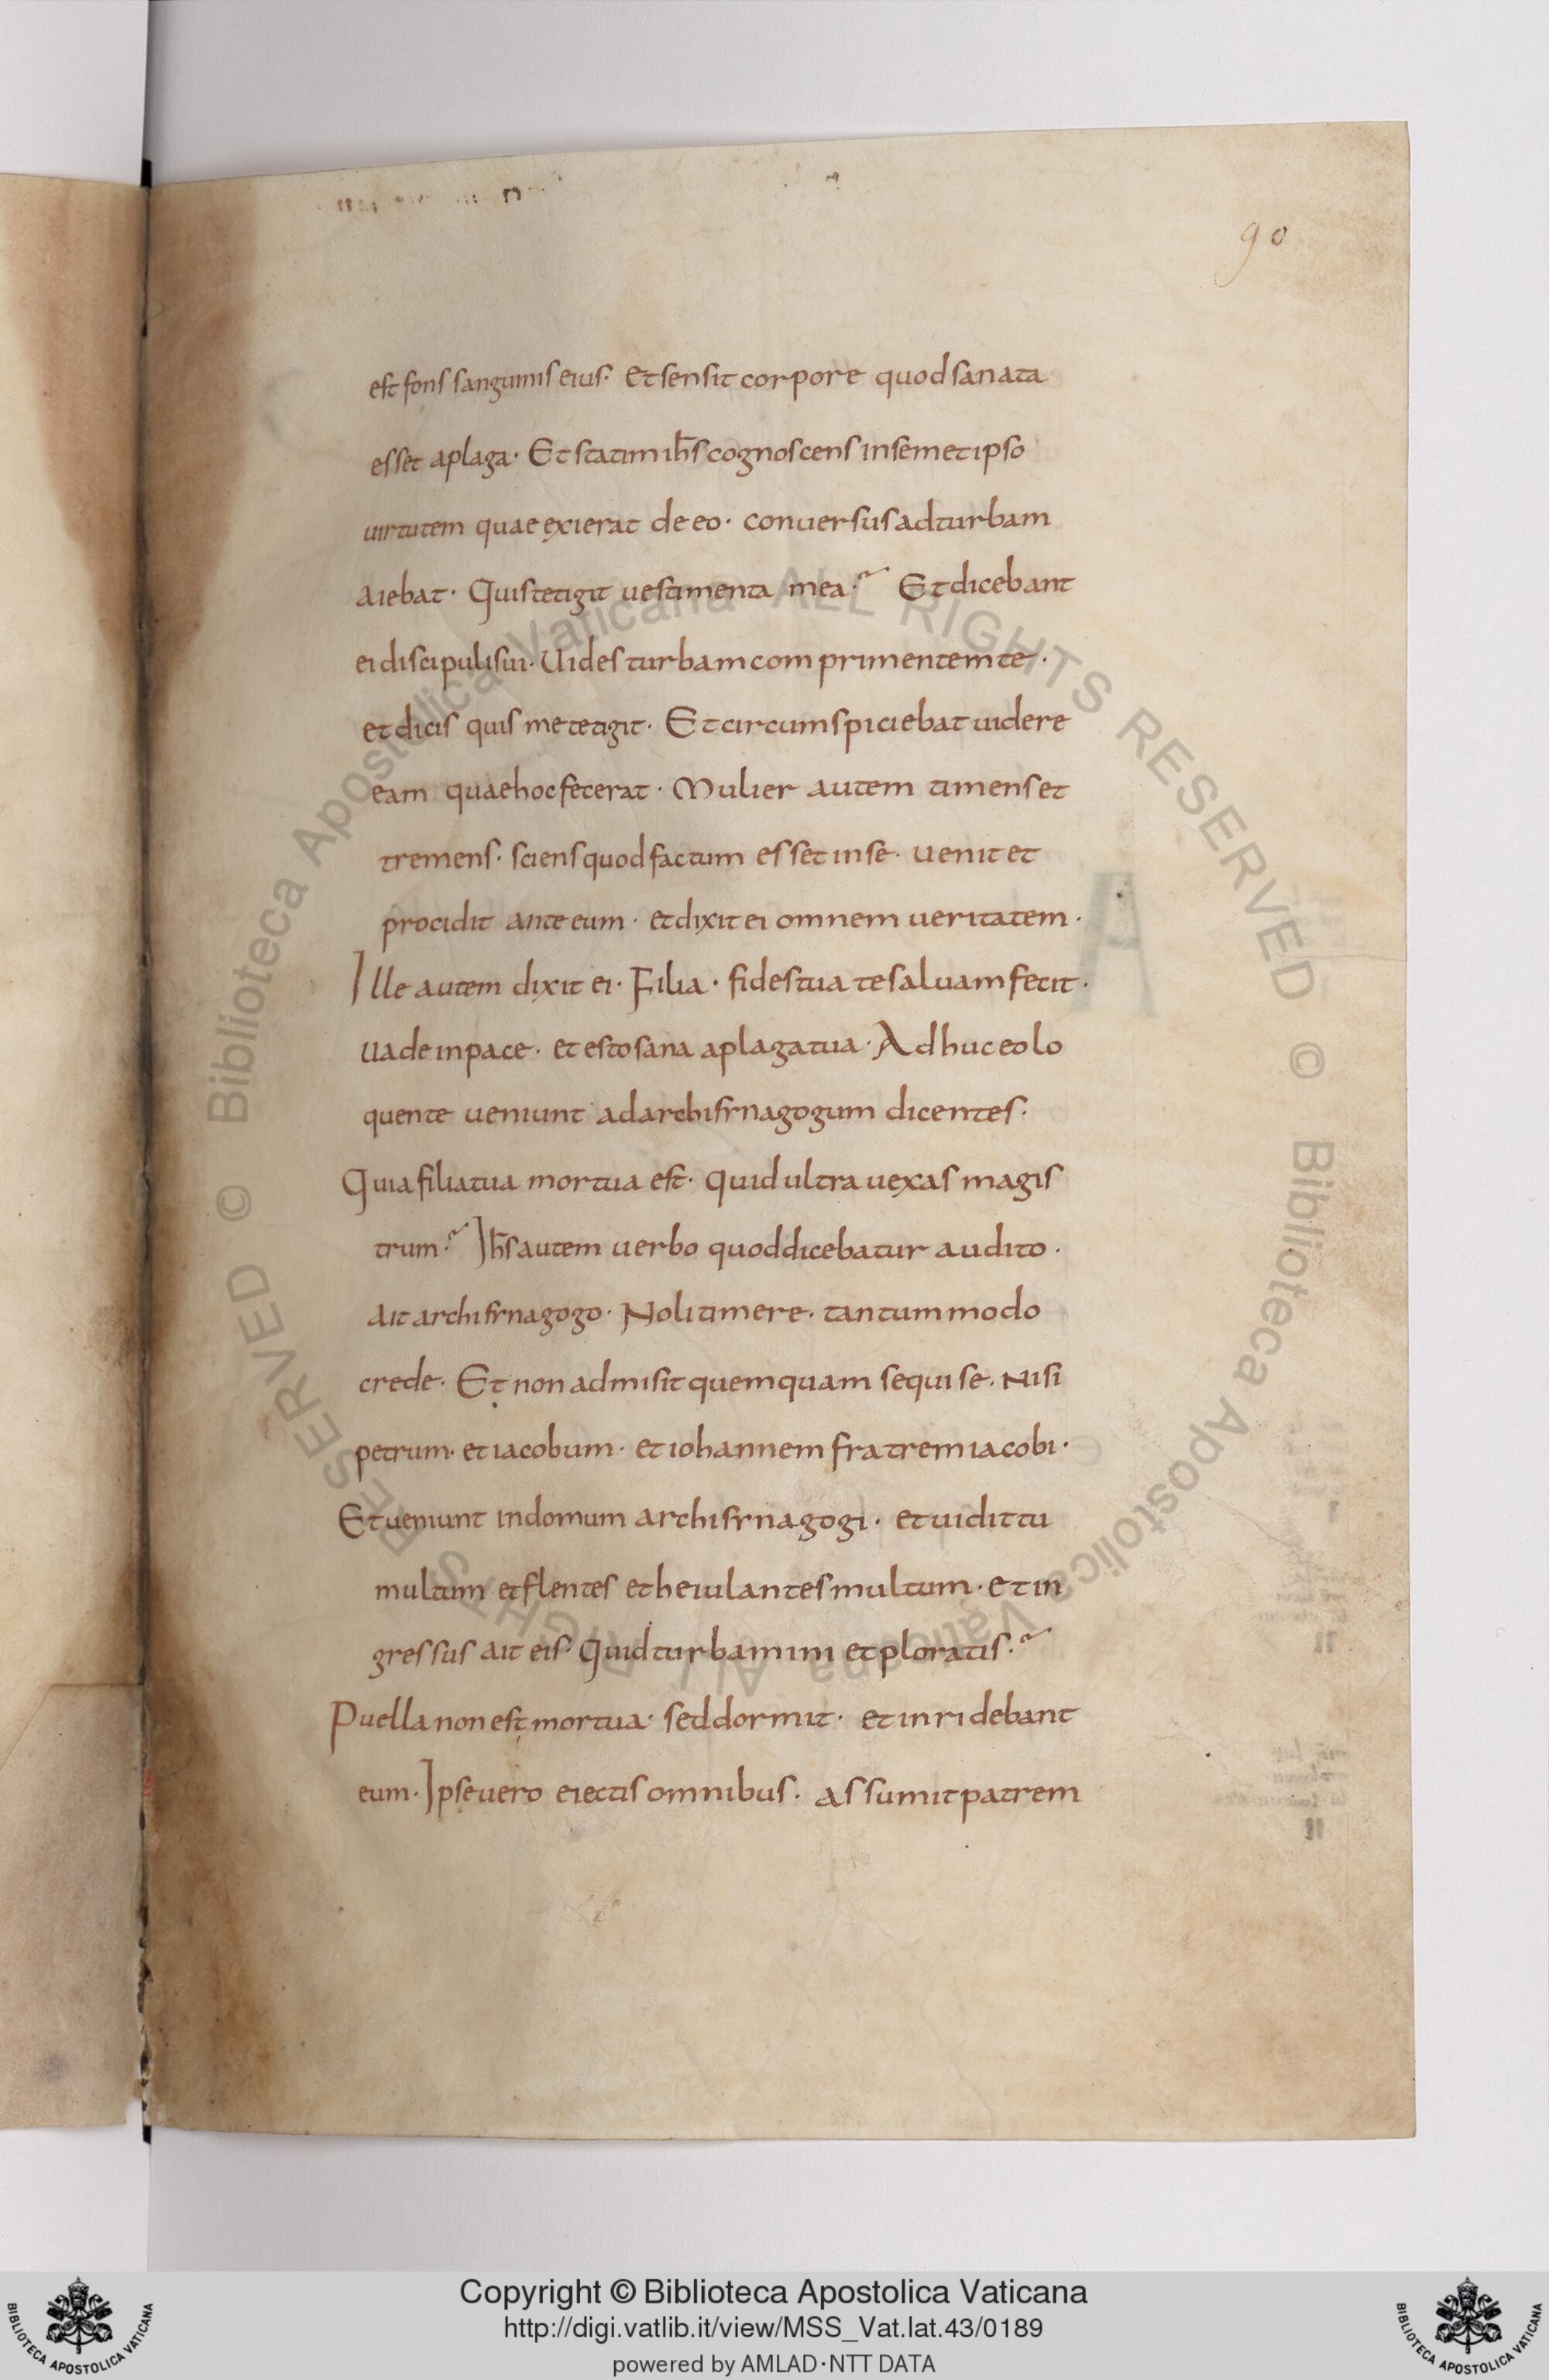 90
est fons sanguinis eius· Et sensit corpore quod sanata
esset a plaga· Et statim ih̅s cognoscens in semet ipso
uirtutem quae exierat de eo· conuersus ad turbam
aiebat· Quis tetigit uestimenta mea? Et dicebant
ei discipuli sui· Uides turbam comprimentem te·
et dicis quis me tetigit· Et circumspiciebat uidere
eam quae hoc fecerat· Mulier autem timens et
tremens· sciens quod factum esset in se· uenit et
procidit ante eum· et dixit ei omnem ueritatem·
Ille autem dixit ei· Filia· fides tua te saluam fecit·
uade in pace· et esto sana a plaga tua· Adhuc eo lo
quente ueniunt ad archisynagogum dicentes·
Quia filia tua mortua est· quid ultra uexas magis
trum? Ih̅s autem uerbo quod dicebatur audito·
ait archisynagogo· Noli timere· tantummodo
crede· Et non admisit quemquam sequi se· Nisi
petrum· et iacobum· et iohannem fratrem iacobi·
Et ueniunt in domum archisynagogi· et uidit tu
multum et flentes et heiulantes multum· et in
gressus ait eis· Quid turbamini et ploratis?
Puella non est mortua· sed dormit· et inridebant
eum· Ipse uero eiectis omnibus· assumit patrem
© Biblioteca Apostolica Vaticana ALL RIGHTS RESERVED
© Biblioteca Apostolica Vaticana ALL RIGHTS RESERVED
Copyright © Biblioteca Apostolica Vaticana
http://digi.vatlib.it/view/MSS_Vat.lat.43/0189
powered by AMLAD·NTT DATA
BIBLIOTECA APOSTOLICA VATICANA
BIBLIOTECA APOSTOLICA VATICANA